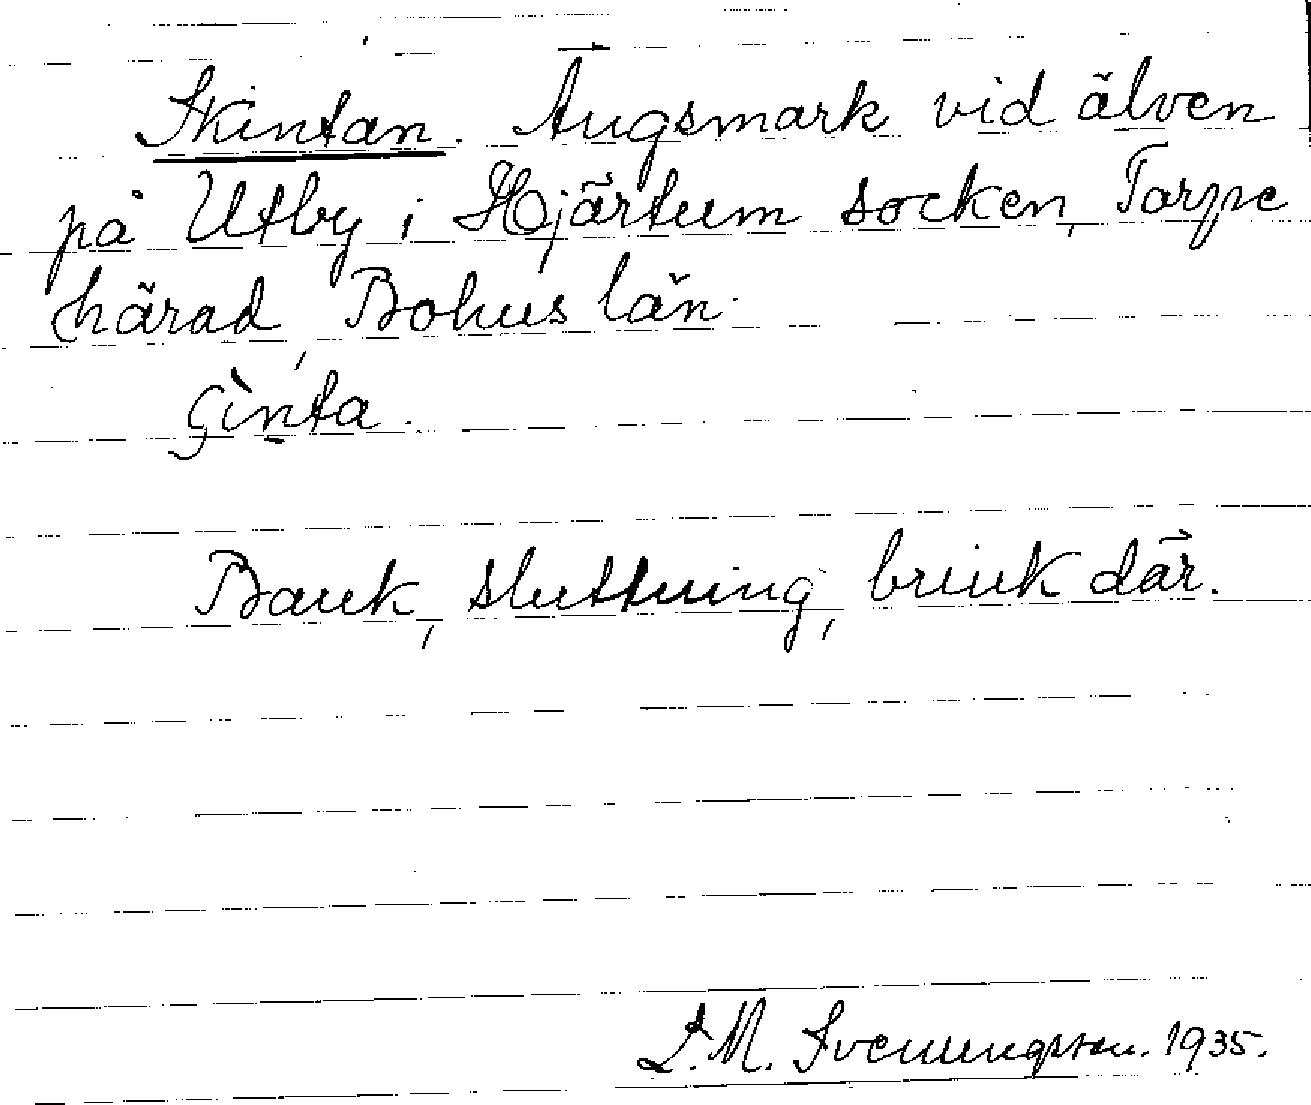 Skintan. Ängsmark vid älven
på Utby i Hjärtum socken, Torpe
härad, Bohus län.
çìnta.
Bank, sluttning, brink där.
D. M. Svenungsson. 1935.